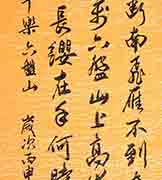 断南飛雁不到
萬六盤山上高
長纓在手何時
平樂六盤山 歲次丙申